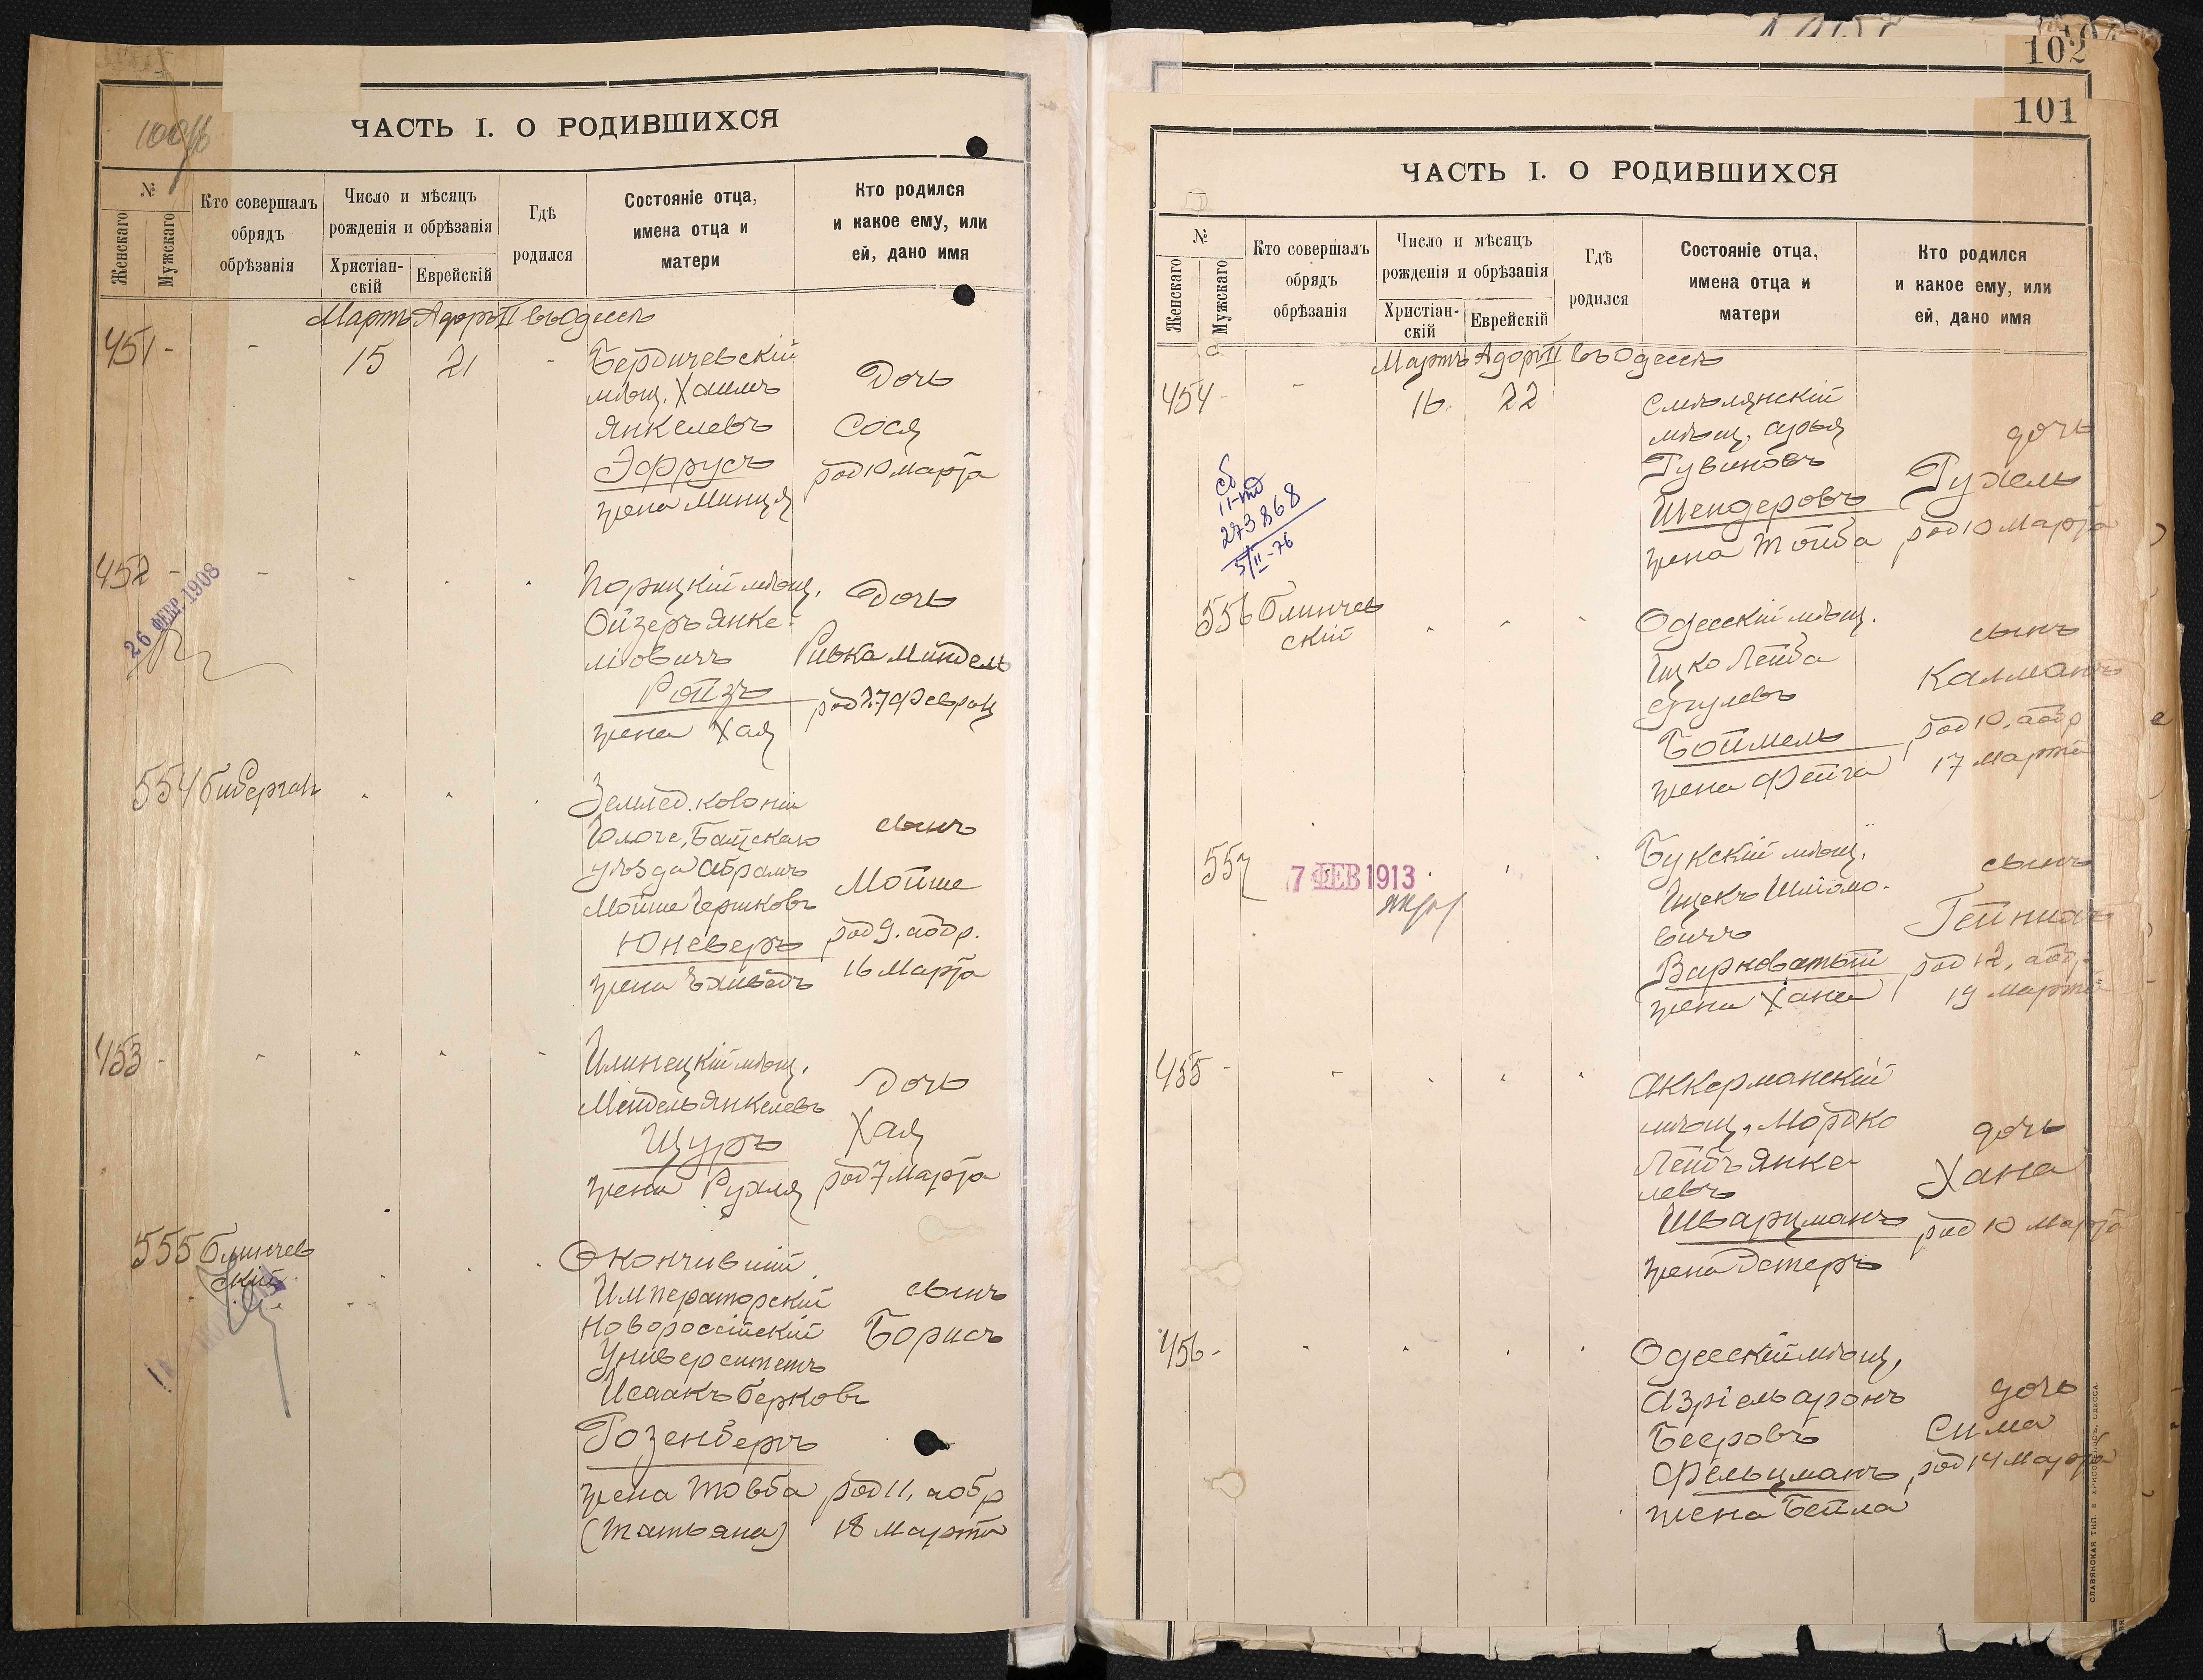 ЧАСТЬ I. О РОДИВШИХСЯ
№
Женскаго
Мужскаго
Кто совершалъ
обрядъ
обрѣзанія
Число и мѣсяцъ
рожденія и обрѣзанія
Христіан-
скій
Еврейскій
Гдѣ
родился
Состояніе отца,
имена отца и
матери
Кто родился
и какое ему, или
ей, дано имя
Мартъ Адоръ II въ Одессѣ
451 - - 15 21 -
Бердичевскій
мѣщ. Хаимъ
Янкелевъ
Эфрусъ
жена Минця
Дочь
Сося
род 10 марта
452 -
26 ФЕВР. 1908
Порицкій мѣщ.
Ойзеръ Янке-
лѣовичъ
Ройзъ
жена Хая
Дочь
Ривка Миндель
род 27 Февраля
554
Землед. колоніи
уѣзда Абрамъ
Мойше Гершковъ
Юневеръ
жена
сынъ
Мойше
род 9. аобр.
16 Марта
453 -
Илинецкій мѣщ.
Мендель Янкелевъ
Щуръ
жена Рухля
Дочь
Хая
род 7 Марта
555 Блинчев
скій
Окончившій
Императорскій
Новороссійскій
Университетъ
Исаакъ Берковъ
Розенбергъ
жена Товба
(Татьяна)
сынъ
Борисъ
род 11, аобр
18 Марта
102
101
ЧАСТЬ I. О РОДИВШИХСЯ
№
Женскаго
Мужскаго
Кто совершалъ
обрядъ
обрѣзанія
Число и мѣсяцъ
рожденія и обрѣзанія
Христіан-
скій
Еврейскій
Гдѣ
родился
Состояніе отца,
имена отца и
матери
Кто родился
и какое ему, или
ей, дано имя
Мартъ Адоръ II въ Одессѣ
454 - - 16. 22
273868
5/II-76
Смѣлянскій
мѣщ. Арья
Рувиновъ
Шендеровъ
жена Тойба
дочь
Рухель
род 10 Марта
556 Блинчев
скій
Одесскій мѣщ.
Ицко Лейба
Срулевъ
Боймель
жена Фейга
сынъ
Калманъ
род 10, аобр
17 Марта
557
7 ФЕВ 1913
Букскій мѣщ.
Ицекъ Шліомо-
вичъ
Варноватый
жена Хана
сынъ
род 12, аобр
19 Марта
455 -
Аккерманскій
мѣщ. Мордко
Лейбъ Янке-
левъ
Шварцманъ
жена Эстеръ
дочь
Хана
род 10 Марта
456 -
Одесскій мѣщ.
Азріель Аронъ
Бееровъ
Фельцманъ
жена Бейла
дочь
Сима
род 14 Марта